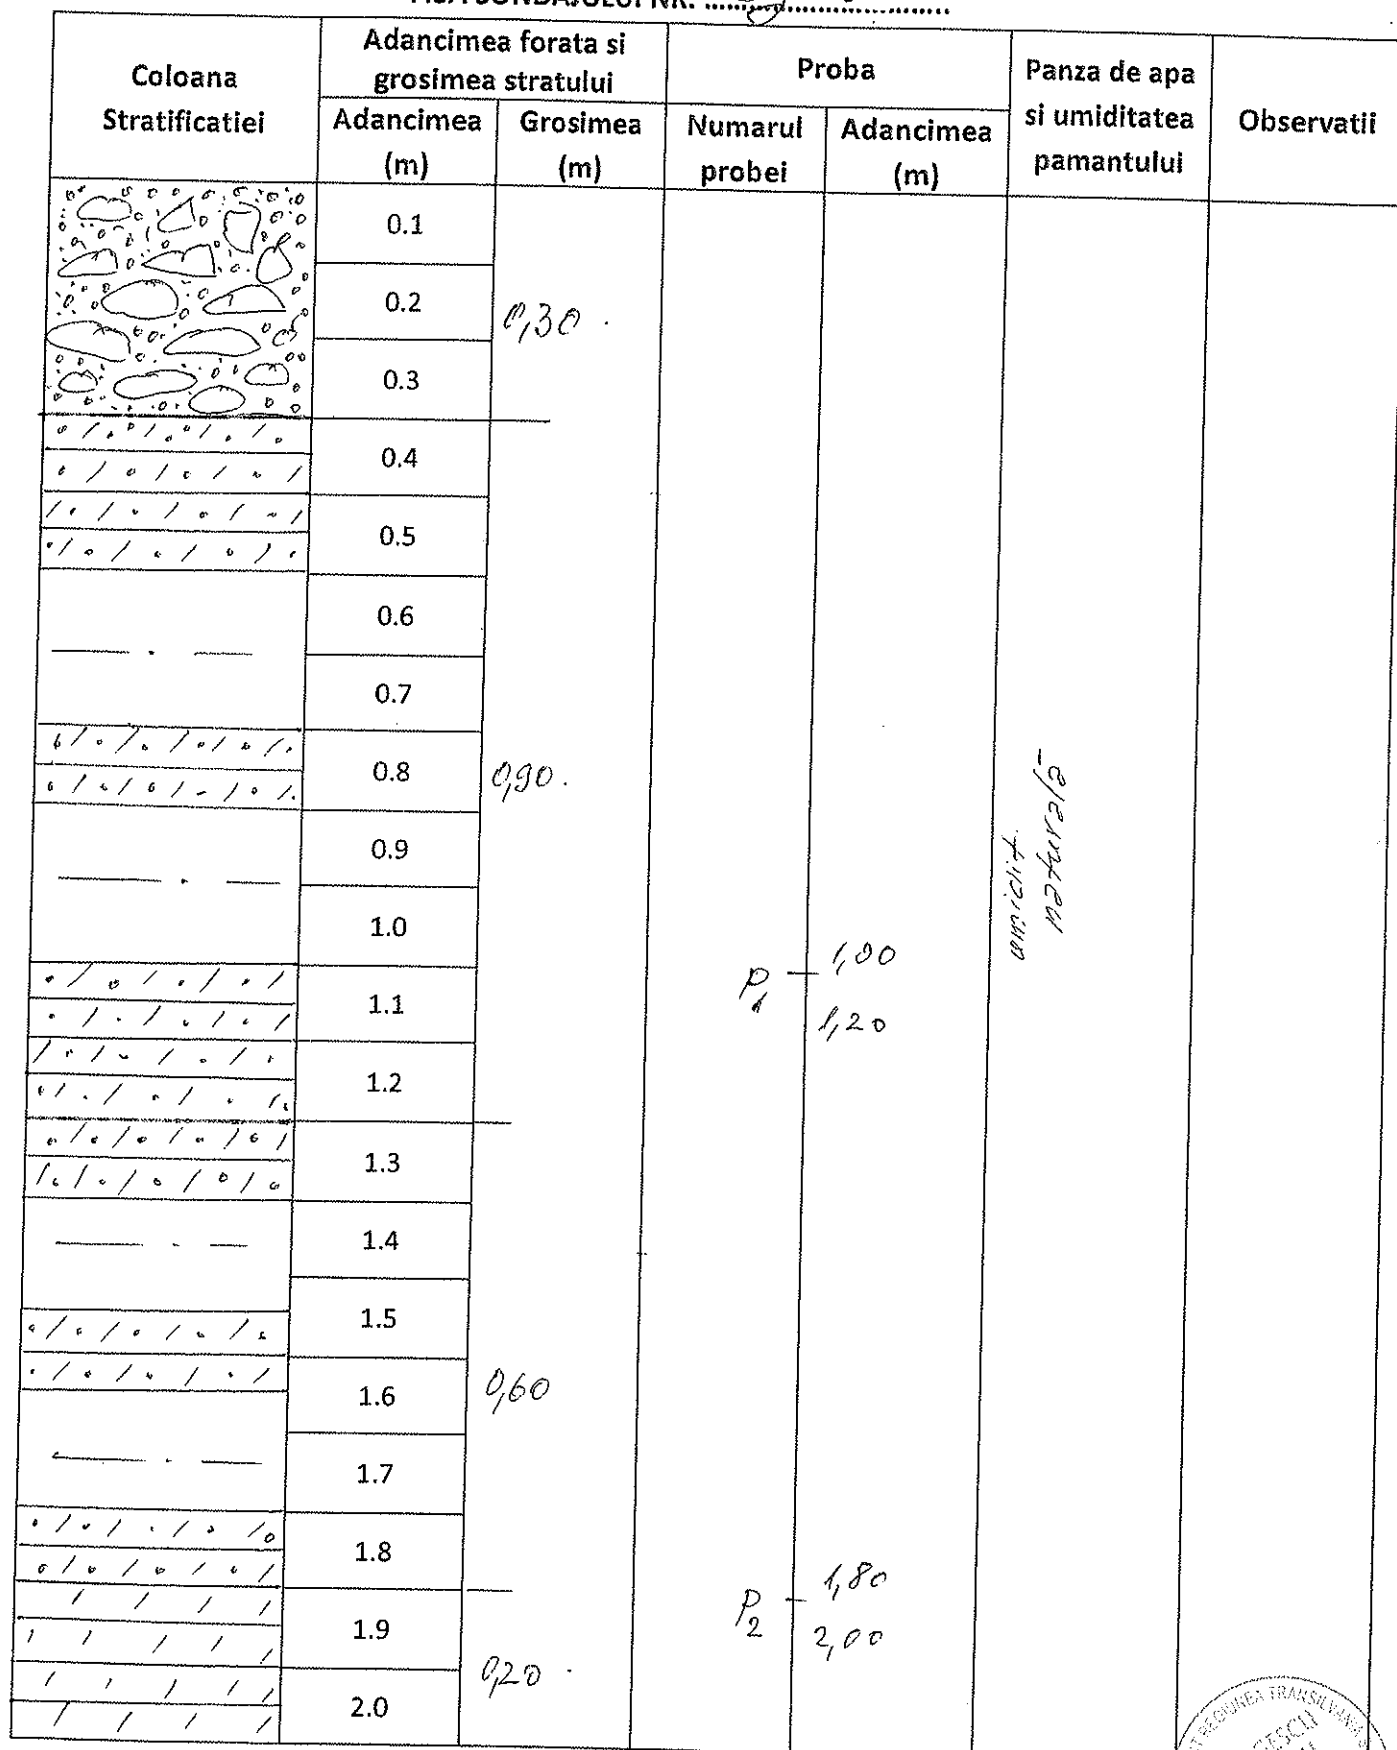 FISA SONDAJULUI NR.
Coloana
Stratificatiei
Adancimea forata si
grosimea stratului
Adancimea
(m)
Grosimea
(m)
Proba
Numarul
probei
Adancimea
(m)
Panza de apa
si umiditatea
pamantului
Observatii
0.1
0.2
0,30
0.3
0.4
0.5
0.6
0.7
0.8
0,90
0.9
1.0
umidit.
naturală
P1
1,00
1,20
1.1
1.2
1.3
1.4
1.5
1.6
0,60
1.7
1.8
P2
1,80
2,00
1.9
0,20
2.0
REGIUNEA TRANSILVANIA